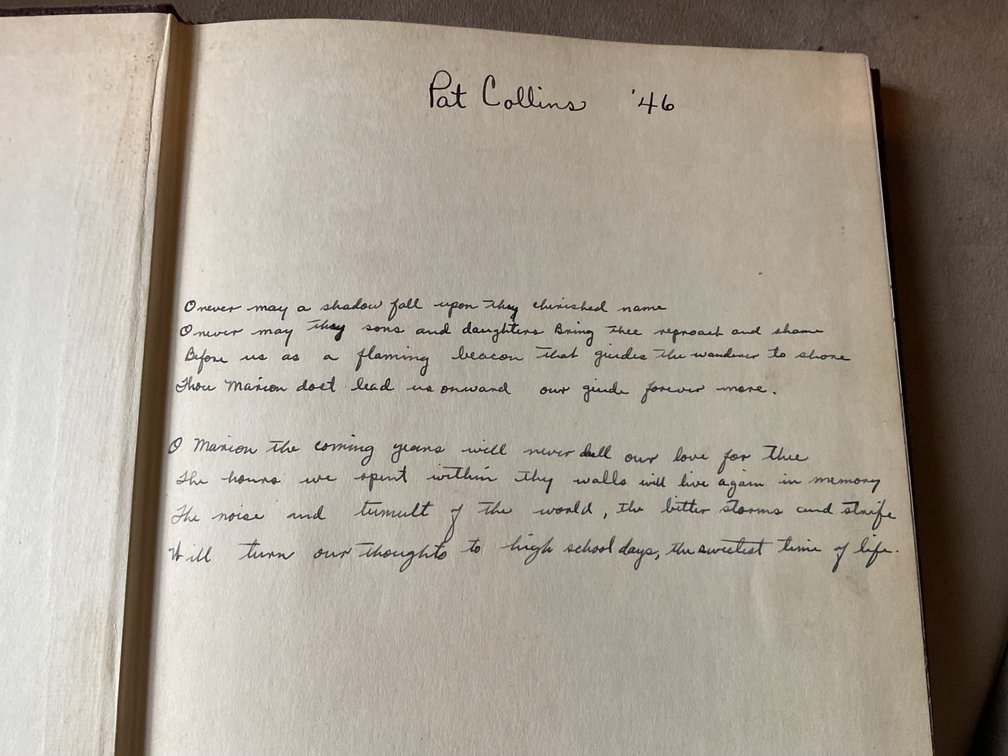 Pat Collins '46
O never may a shadow fall upon thy cherished name
O never may thy sons and daughters Bring thee reproach and shame
Before us as a flaming beacon that guides the wanderer to shore
Thou Marion dost lead us onward our guide forever more.
O Marion the coming years will never dull our love for thee
The hours we spent within thy walls will live again in memory
The noise and tumult of the world, the bitter storms and strife
Will turn our thoughts to high school days, the sweetest time of life.